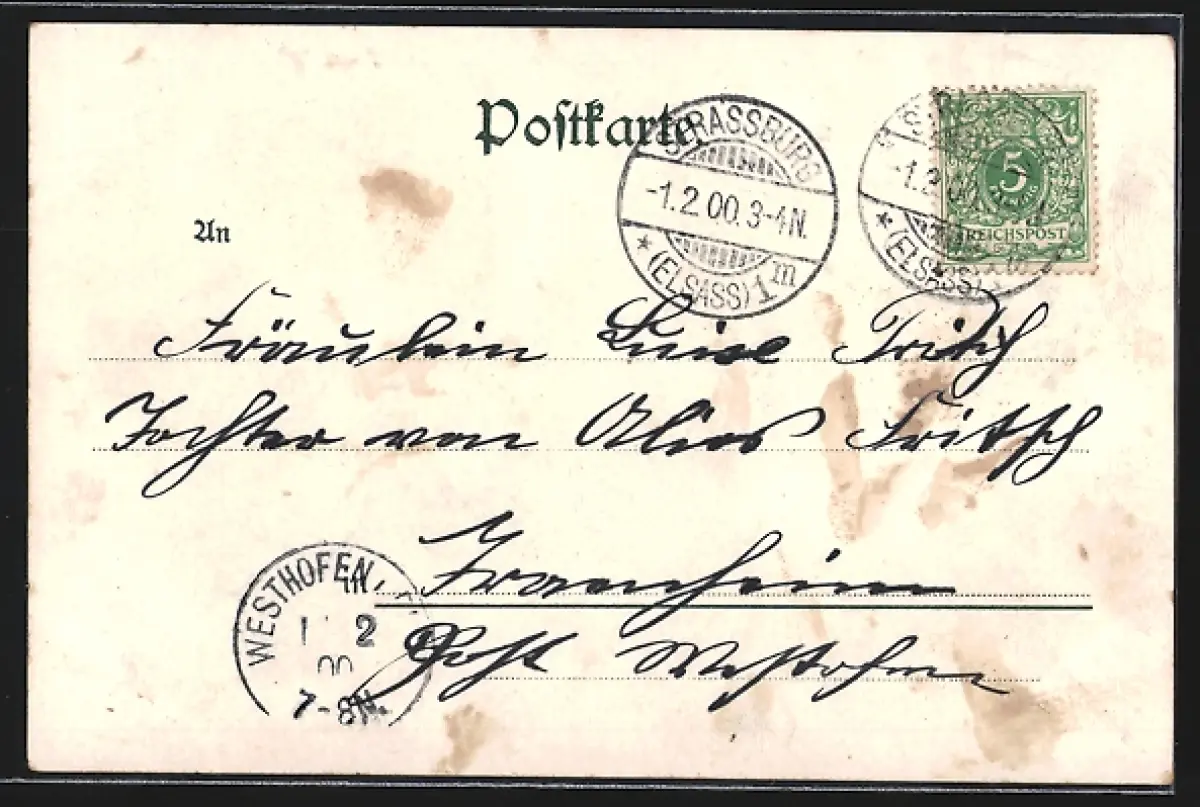 Postkarte
STRASSBURG
-1.2.00.3-4N.
* (ELSASS) 1 m
-1.2.00
* (ELSASS)
5
REICHSPOST
An
Fräulein Luise Fritsch
Tochter von Aloes Fritsch
WESTHOFEN
in Irmenheim
1 2
00
7-8N.
Post Westofen